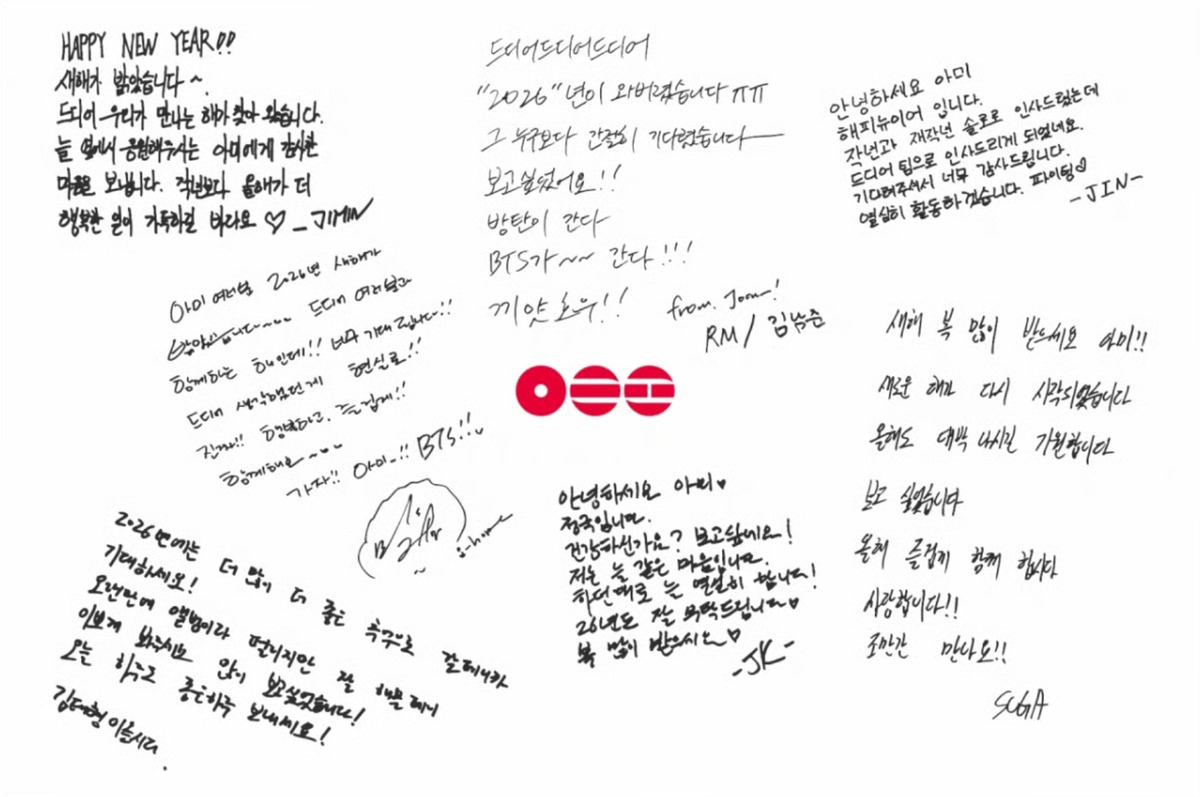 HAPPY NEW YEAR!!
새해가 밝았습니다~
드디어 우리가 만나는 해가 찾아 왔습니다.
늘 옆에서 응원해주시는 아미에게 감사한
마음을 보냅니다. 작년보다 올해가 더
행복한 일이 가득하길 바라요 ♡ _JIMIN
드디어드디어드디어
"2026"년이 와버렸습니다 ㅠㅠ
그 누구보다 간절히 기다렸습니다
보고싶었어요!!
방탄이 간다
BTS가~~ 간다!!!
끼얏호우!!
from. Joon!
RM / 김남준
안녕하세요 아미
해피뉴이어 입니다.
작년과 재작년 솔로로 인사드렸는데
드디어 팀으로 인사드리게 되었네요.
기다려주셔서 너무 감사드립니다.
열심히 활동하겠습니다. 파이팅♡
-JIN-
아미 여러분 2026년 새해가
밝았습니다~~ 드디어 여러분과
함께하는 해인데!! 너무 기대됩니다!!
드디어 생각했던게 현실로!!
진짜!! 행복하고, 즐겁게!!
함께해요~~
가자!! 아미!! BTS!!
j-hope
새해 복 많이 받으세요 아미!!
새로운 해가 다시 시작되었습니다
올해도 대박 나시길 기원합니다
보고 싶었습니다
올해 즐겁게 함께 합시다
사랑합니다!!
조만간 만나요!!
SUGA
2026년에는 더 많이 더 좋은 추억으로 갈테니까
기대하세요!
오랜만에 앨범이라 떨리지만 잘 해볼테니
이쁘게 봐주세요 많이 보고싶었습니다!
오늘 하루도 좋은하루 보내세요!
김태형이었습니다.
안녕하세요 아미♥
정국입니다.
건강하신가요? 보고싶네요!
저는 늘 같은 마음입니다.
하던대로 늘 열심히 합니다!
26년도 잘 부탁드립니다♥
복 많이 받으시오♡
-JK-